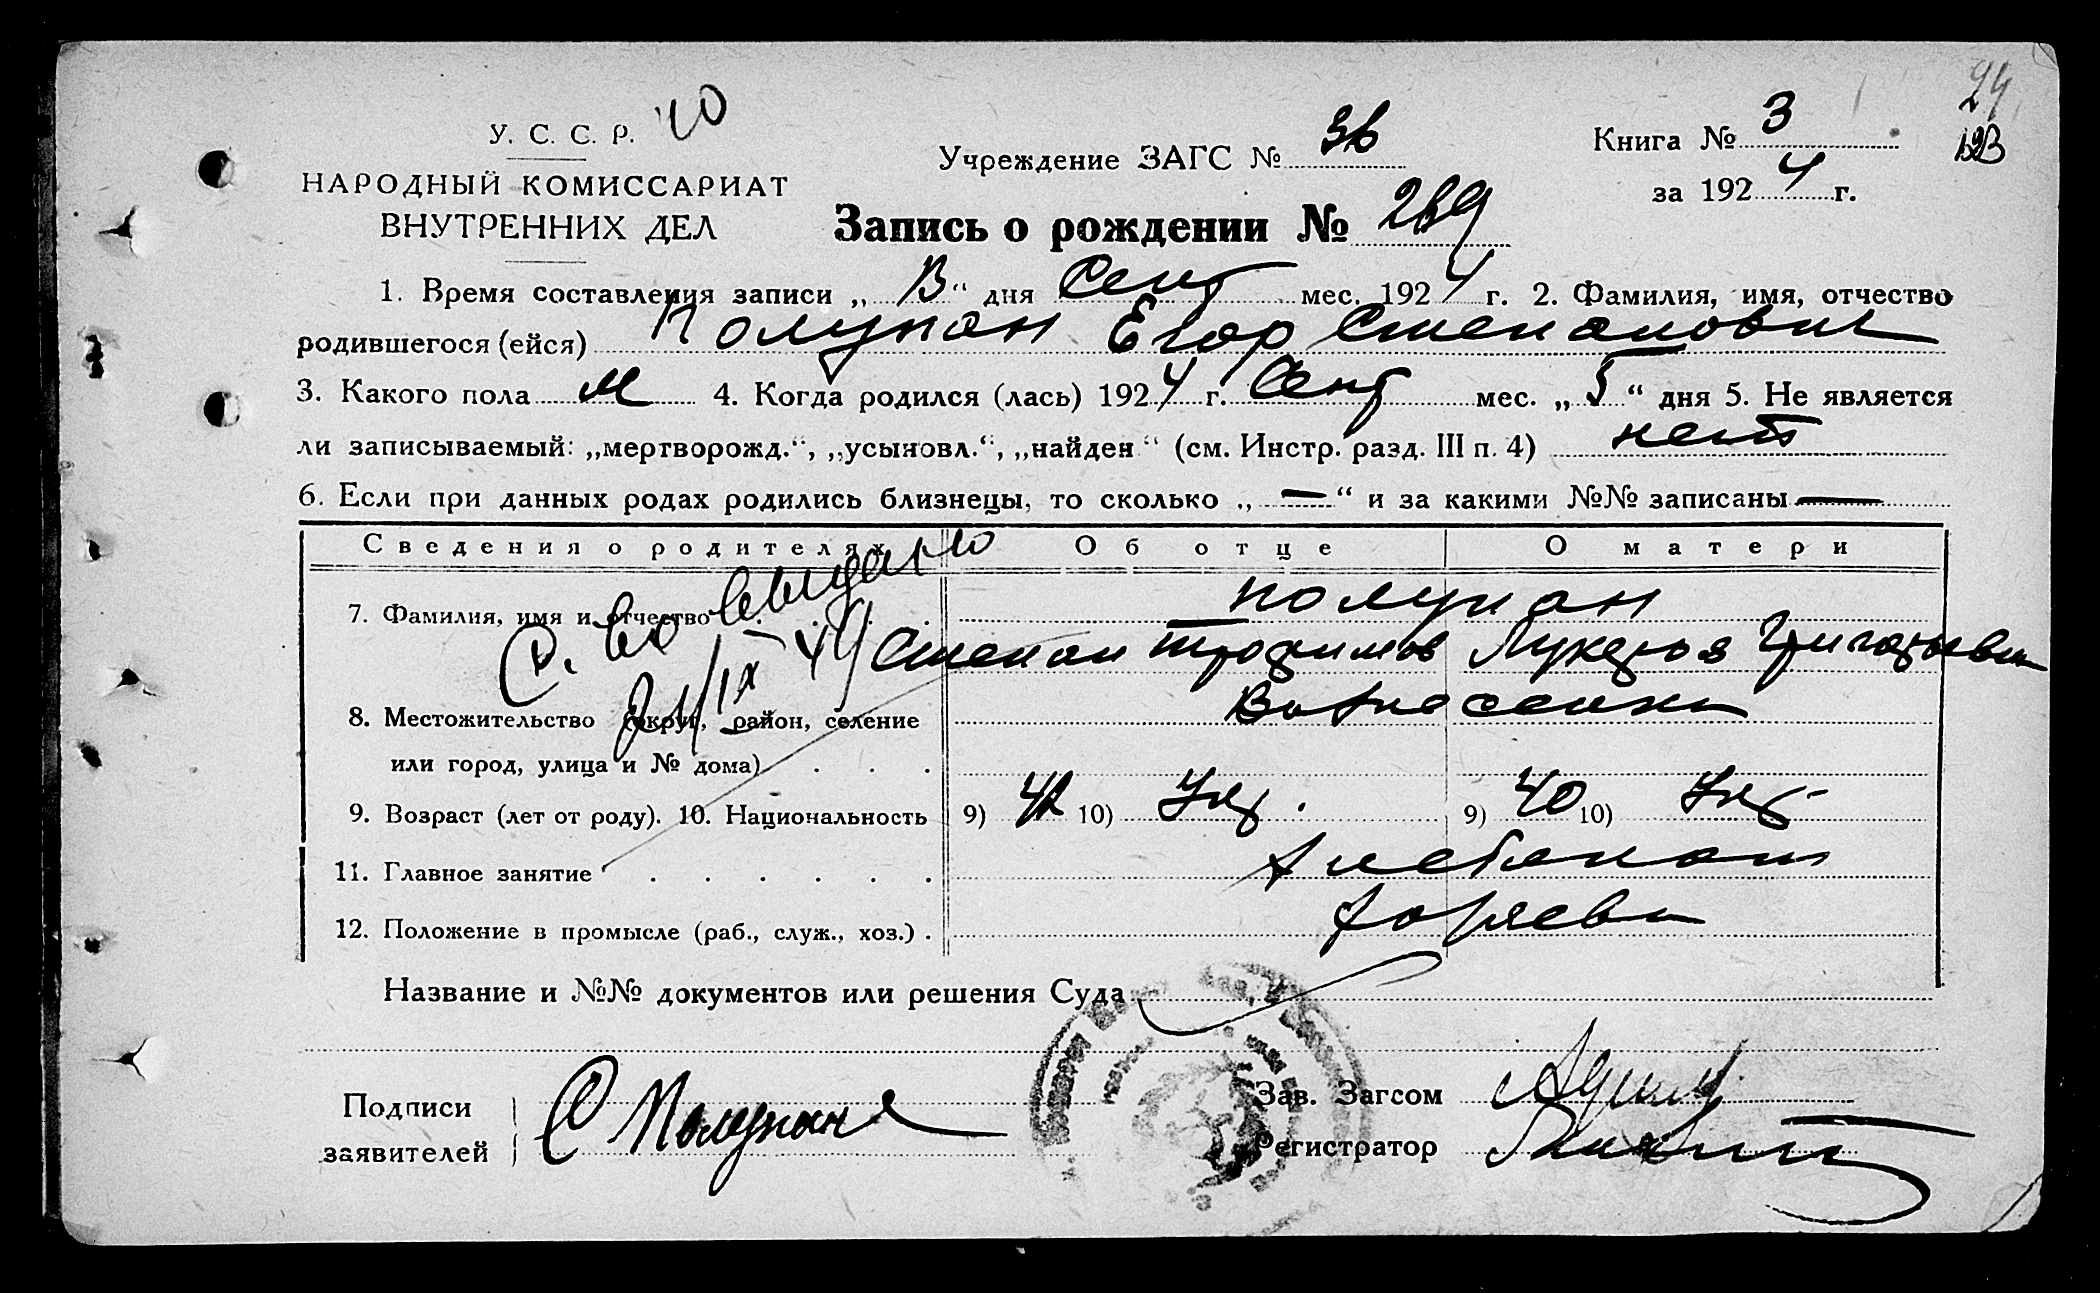 24
У. С. С. Р.
НАРОДНЫЙ КОМИССАРИАТ
ВНУТРЕННИХ ДЕЛ
Учреждение ЗАГС № 36
Книга № 3
за 1924 г.
Запись о рождении № 269
1. Время составления записи „ “ дня Сент мес. 1924 г. 2. Фамилия, имя, отчество
родившегося (ейся) Полупан Егор Степанович
3. Какого пола м 4. Когда родился (лась) 1924 г. Сент мес. „ 5 “ дня 5. Не является
ли записываемый: „мертворожд.“, „усыновл.“, „найден“ (см. Инстр. разд. III п. 4) нет
6. Если при данных родах родились близнецы, то сколько „ — “ и за какими №№ записаны —
Сведения о родителях Об отце О матери
С. во выдано
7. Фамилия, имя и отчество Полупан
Степан Трофимов Лукерья Григорьевн
8. Местожительство (округ, район, селение Вознесенка
или город, улица и № дома)
9. Возраст (лет от роду). 10. Национальность 9) 42 10) Укр. 9) 40 10) Укр
11. Главное занятие Хлебопаш
12. Положение в промысле (раб., служ., хоз.) Хозяева
Название и №№ документов или решения Суда
Подписи
заявителей С Полупан
Зав. Загсом
Регистратор